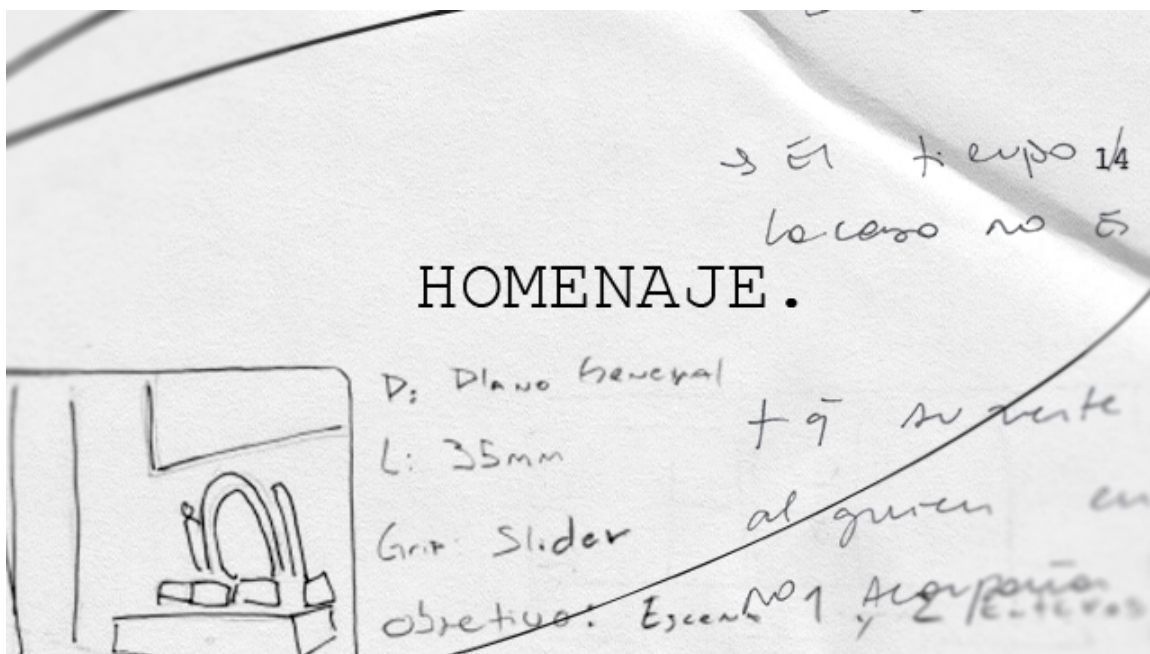 → El tiempo 14
la casa no Es
HOMENAJE.
P: Plano General
L: 35mm
Grip: Slider
Objetivo: Escena 1 y 2 Enteras
+ q̄
alguien en
No Acompaña